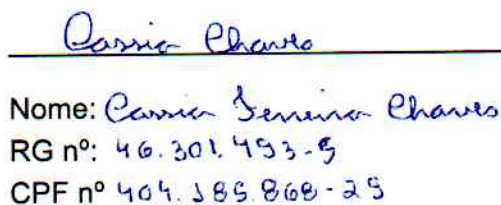 Cassia Chaves
Nome: Cassia Ferreira Chaves
RG nº: 46.301.493-9
CPF nº 404.189.868-29